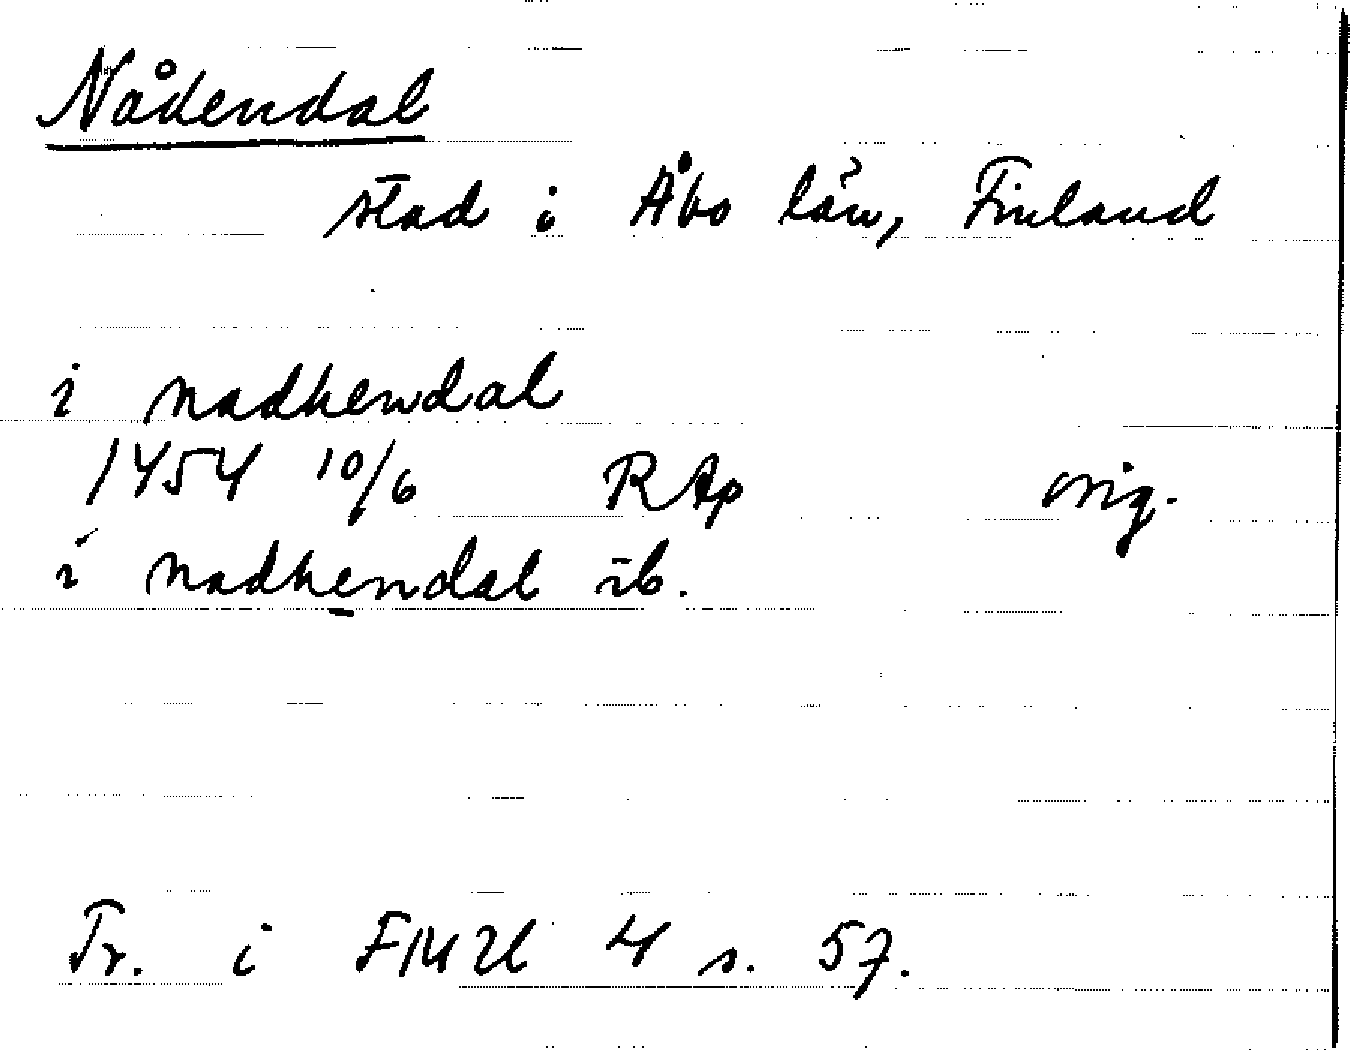 Nådendal
stad i Åbo län, Finland
i nadhendal
1454 10/6 RAp orig.
i nadhendal ib.
Tr. i FMU 4 s. 57.